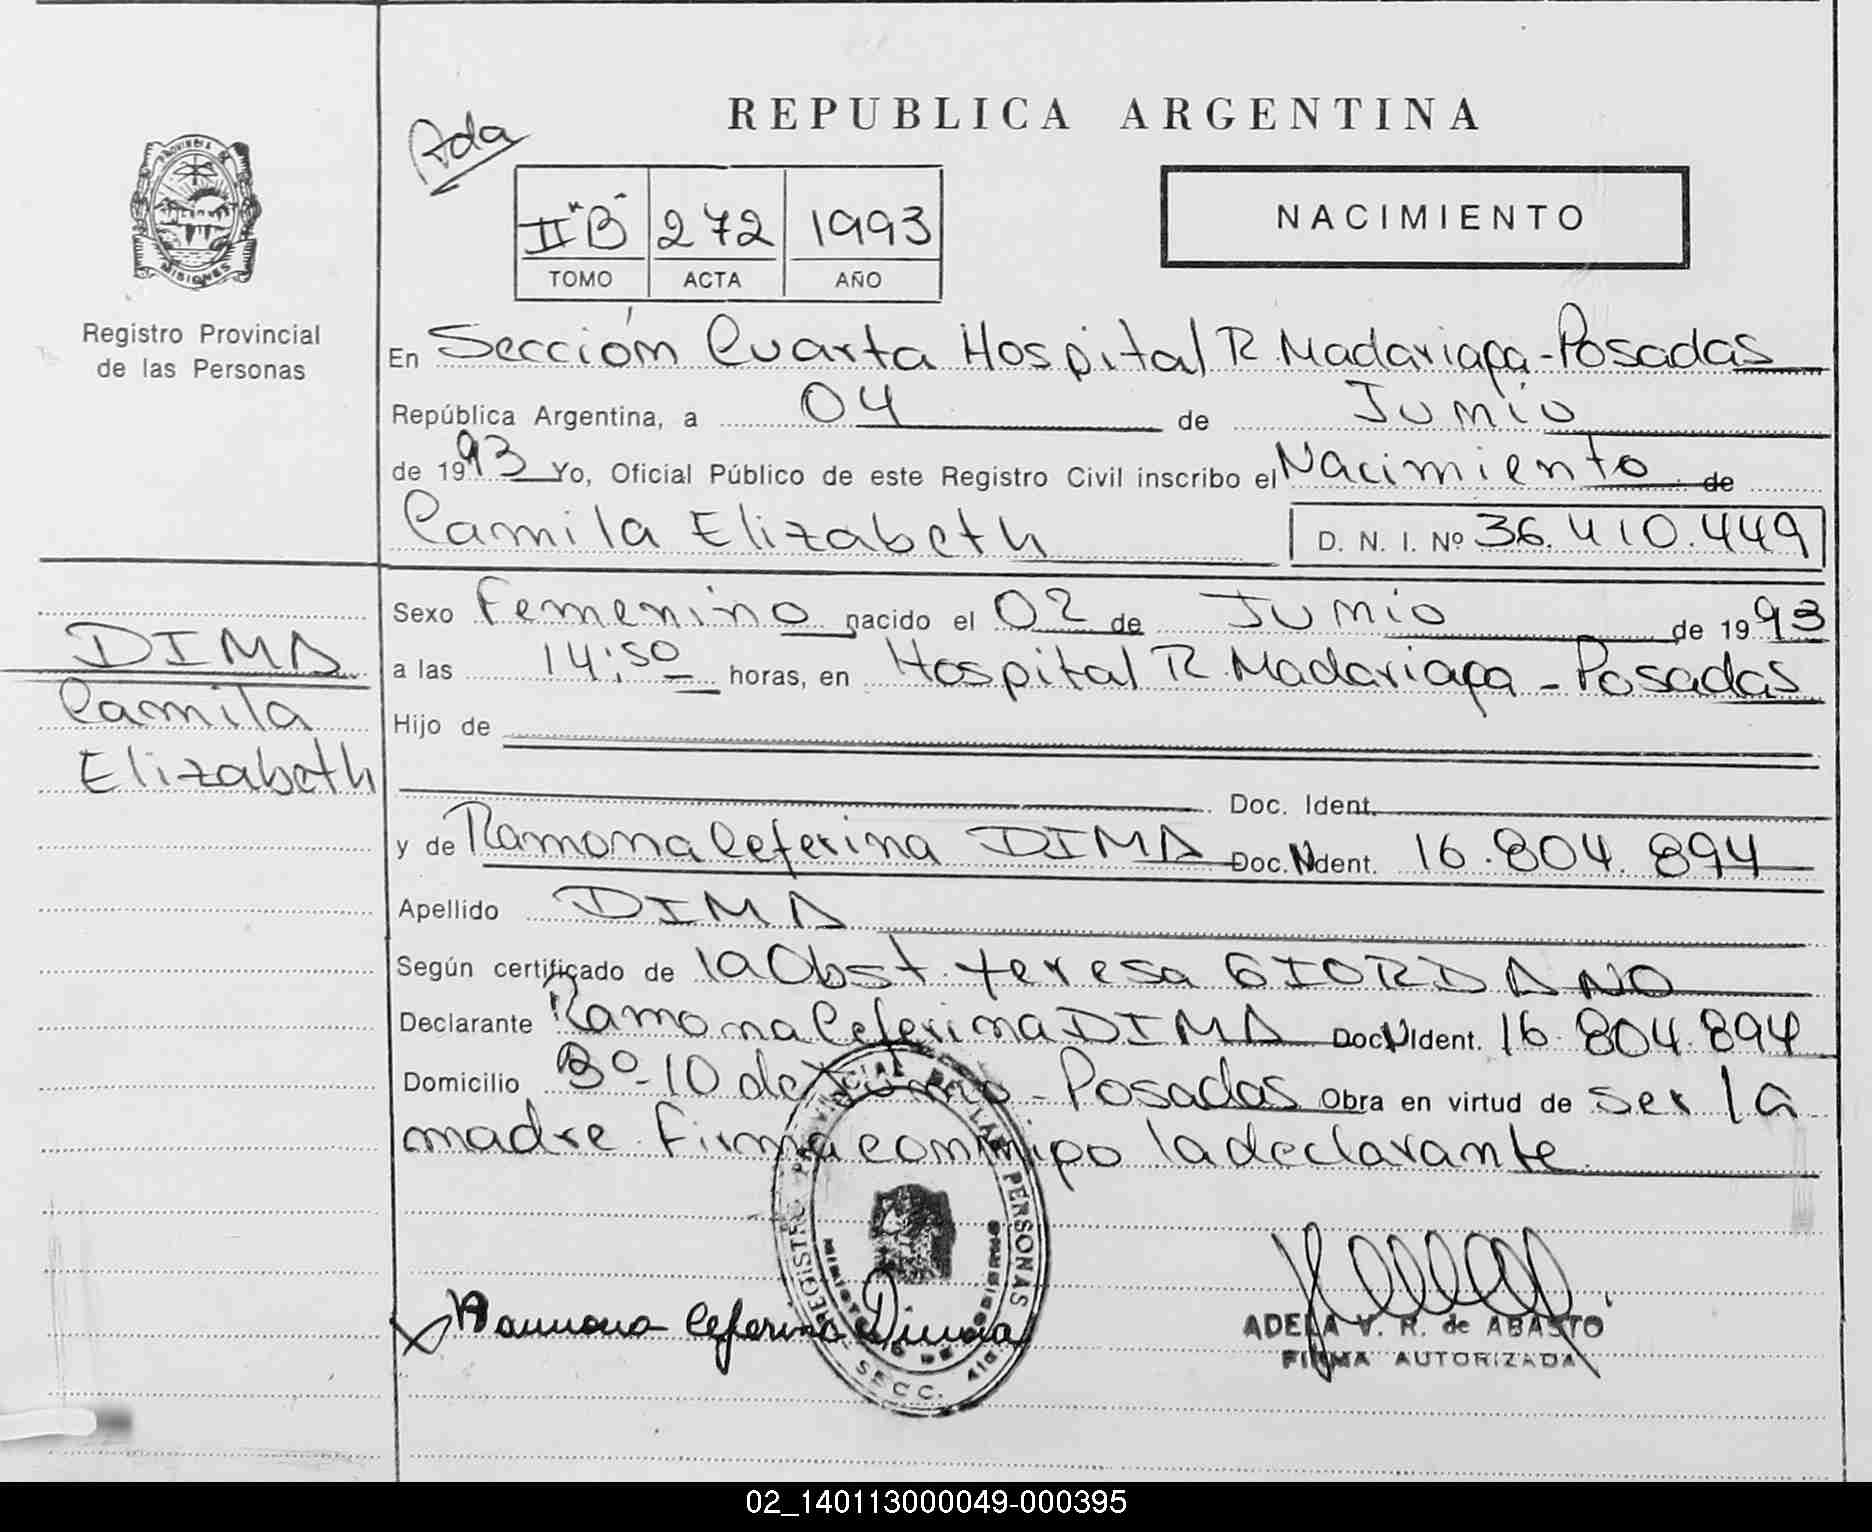 REPUBLICA ARGENTINA
Ada
PROVINCIA DE
MISIONES
Registro Provincial
de las Personas
II "B" 272 1993
TOMO ACTA AÑO
NACIMIENTO
En Sección Cuarta Hospital R. Madariaga - Posadas
República Argentina, a 04 de Junio
de 1993 Yo, Oficial Público de este Registro Civil inscribo el Nacimiento de
Camila Elizabeth D. N. I. Nº 36.410.449
DIMA
Camila
Elizabeth
Sexo Femenino nacido el 02 de Junio de 1993
a las 14:50 horas, en Hospital R. Madariaga - Posadas
Hijo de
Doc. Ident.
y de Ramona Ceferina DIMA Doc. Ident. 16.804.894
Apellido DIMA
Según certificado de la Obst. teresa GIORDANO
Declarante Ramona Ceferina DIMA Doc Ident. 16.804.894
Domicilio Bº-10 de Junio - Posadas Obra en virtud de ser la
madre. Firma conmigo la declarante
REGISTRO PROVINCIAL DE LAS PERSONAS
MINISTERIO DE GOBIERNO
SECC.
Ramona Ceferina Dima
ADELA V. R. de ABASTO
FIRMA AUTORIZADA
02_140113000049-000395